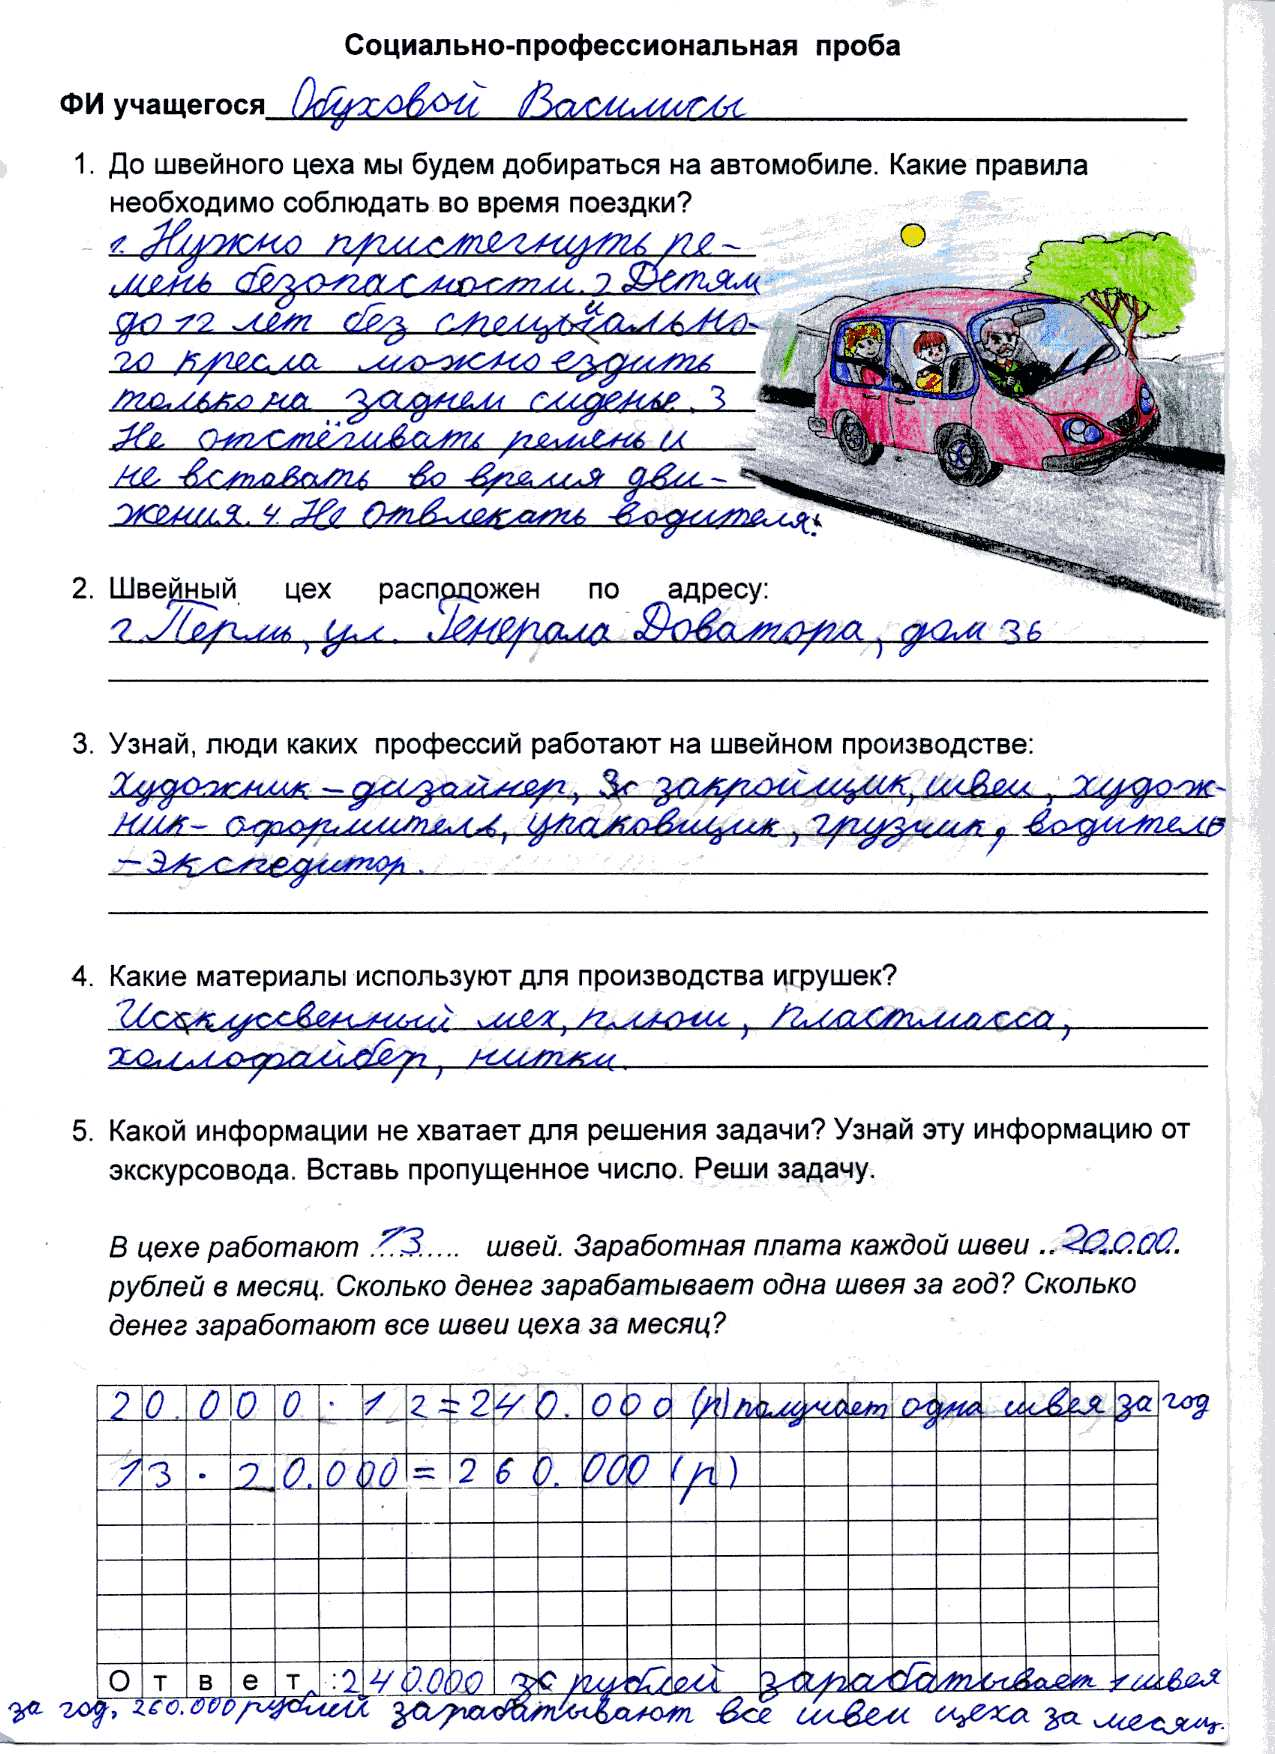 Социально-профессиональная проба
ФИ учащегося Обуховой Василисы
1. До швейного цеха мы будем добираться на автомобиле. Какие правила
необходимо соблюдать во время поездки?
1. Нужно пристегнуть ре-
мень безопасности. 2 Детям
до 12 лет без специально-
го кресла можно ездить
только на заднем сиденье. 3
Не отстёгивать ремень и
не вставать во время дви-
жения. 4. Не отвлекать водителя.
2. Швейный цех расположен по адресу:
г. Пермь, ул. Генерала Доватора, дом 36
3. Узнай, люди каких профессий работают на швейном производстве:
Художник - дизайнер, закройщик, швеи, худож-
ник - оформитель, упаковщик, грузчик, водитель
- экспедитор.
4. Какие материалы используют для производства игрушек?
Исскуссвенный мех, плюш, пластмасса,
холлофайбер, нитки.
5. Какой информации не хватает для решения задачи? Узнай эту информацию от
экскурсовода. Вставь пропущенное число. Реши задачу.
В цехе работают ...13....... швей. Заработная плата каждой швеи ..20.000..
рублей в месяц. Сколько денег зарабатывает одна швея за год? Сколько
денег заработают все швеи цеха за месяц?
20.000 · 12 = 240.000 (р) получает одна швея за год
13 · 20.000 = 260.000 (р)
Ответ: 240.000 рублей зарабатывает 1 швея
за год, 260.000 рублей зарабатывают все швеи цеха за месяц.